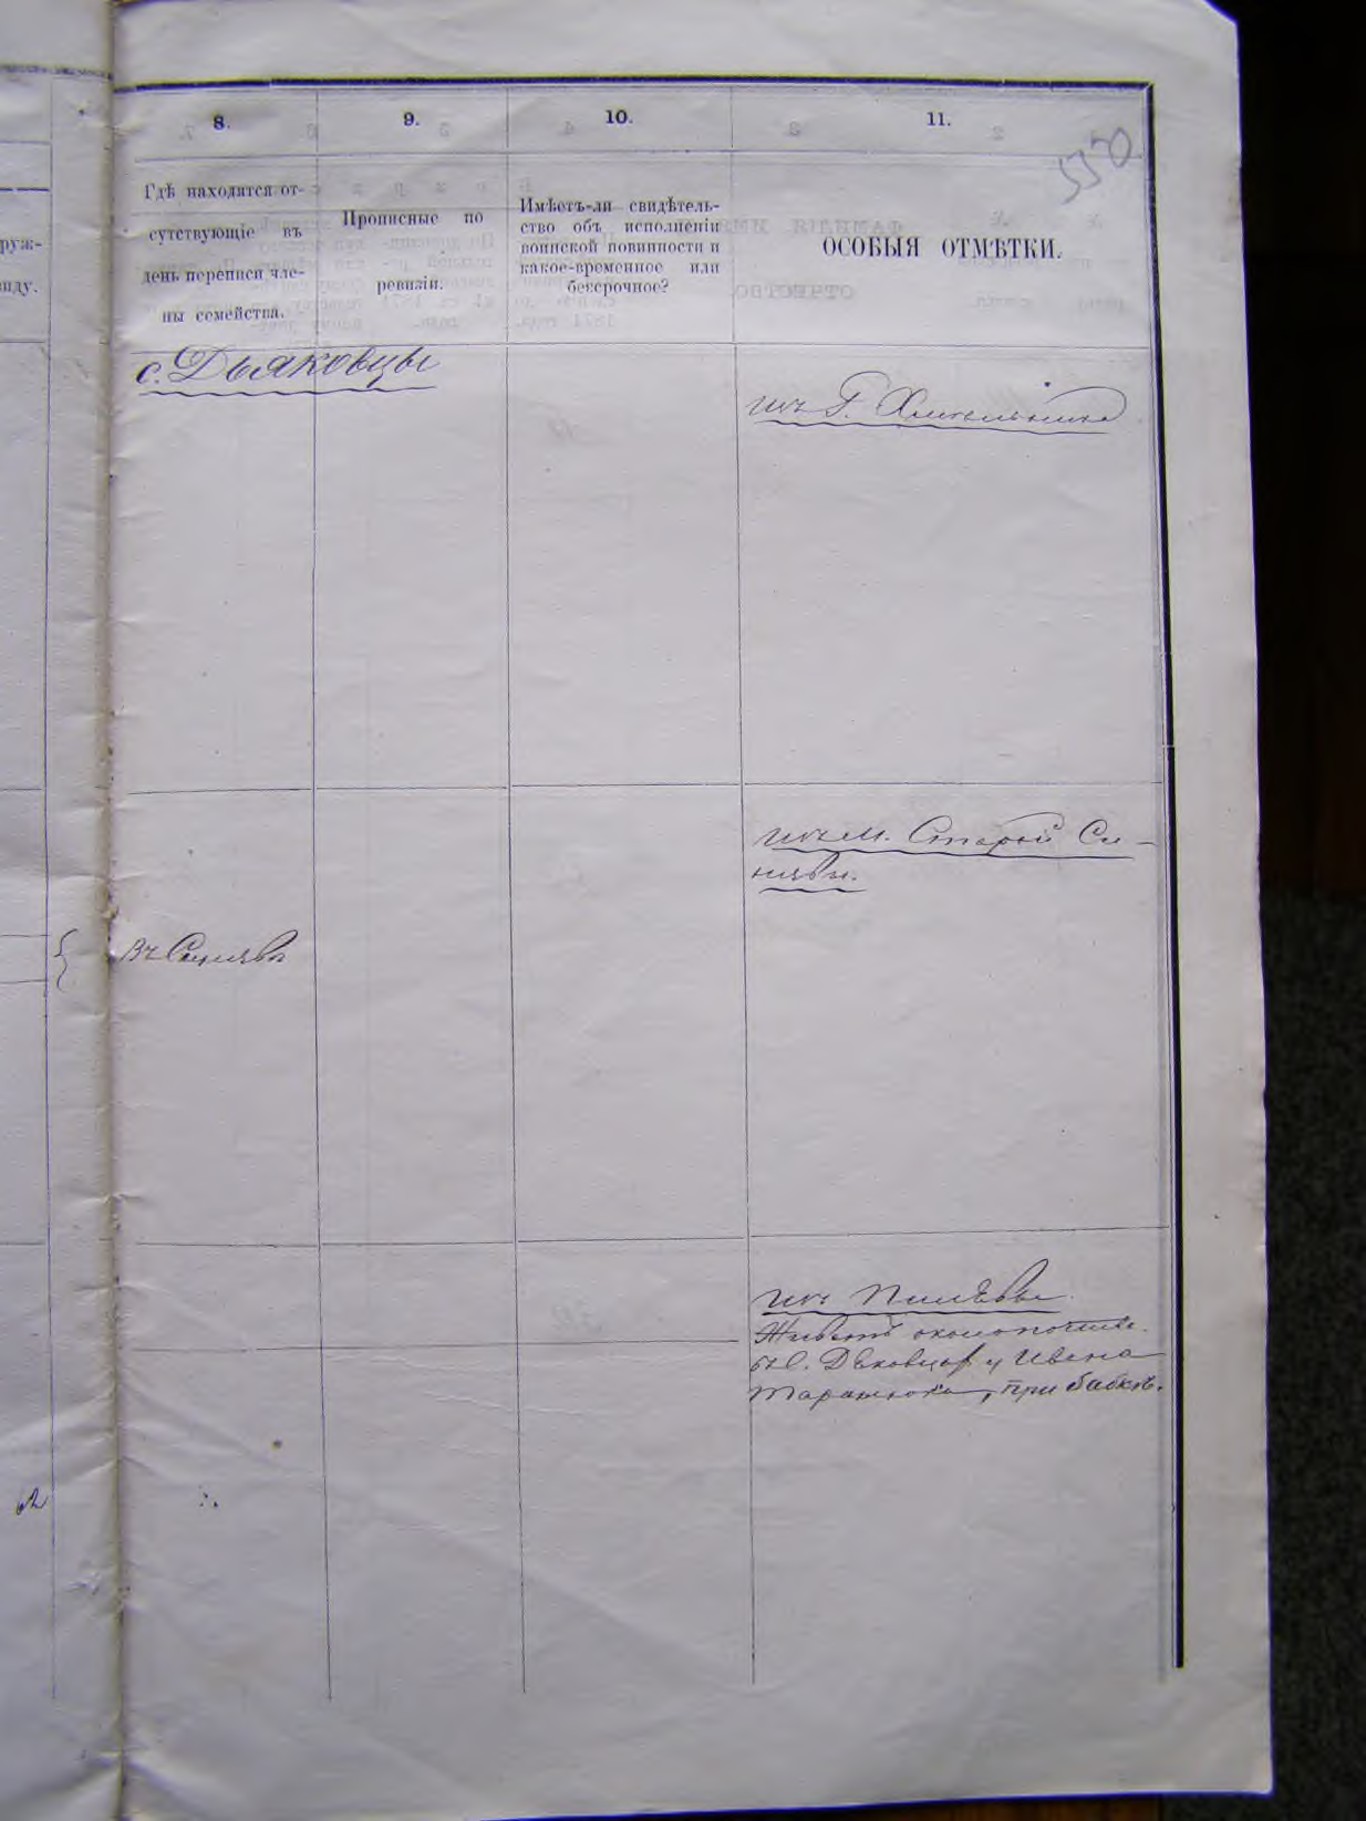 8.
9.
10.
11.
Гдѣ находятся от-
сутствующіе въ
день переписи чле-
ны семейства.
Прописные по
ревизіи.
Имѣетъ-ли свидѣтель-
ство объ исполненіи
воинской повинности и
какое-временное или
безсрочное?
ОСОБЫЯ ОТМѢТКИ.
руж-
виду.
с. Дьяковцы
изъ Г. Хмельника
изъ м. Старой Си-
нявы.
Въ Синявѣ
изъ Пилявы
Живетъ
въ с. Дяковцах у Ивана
при бабкѣ.